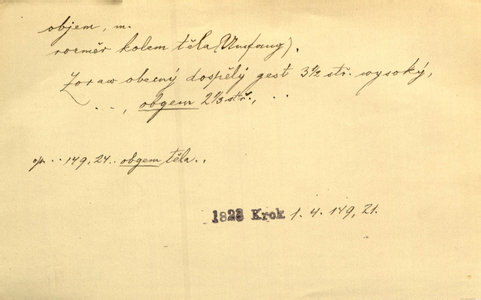 objem, m.
rozměr kolem těla (Umfang).
Zoraw obecný dospělý gest 3½ stř. wysoký,
. . ., obgem 2⅓ stř., . .
op. . . 149, 24. . obgem těla. .
1823 Krok 1. 4. 149, 21.